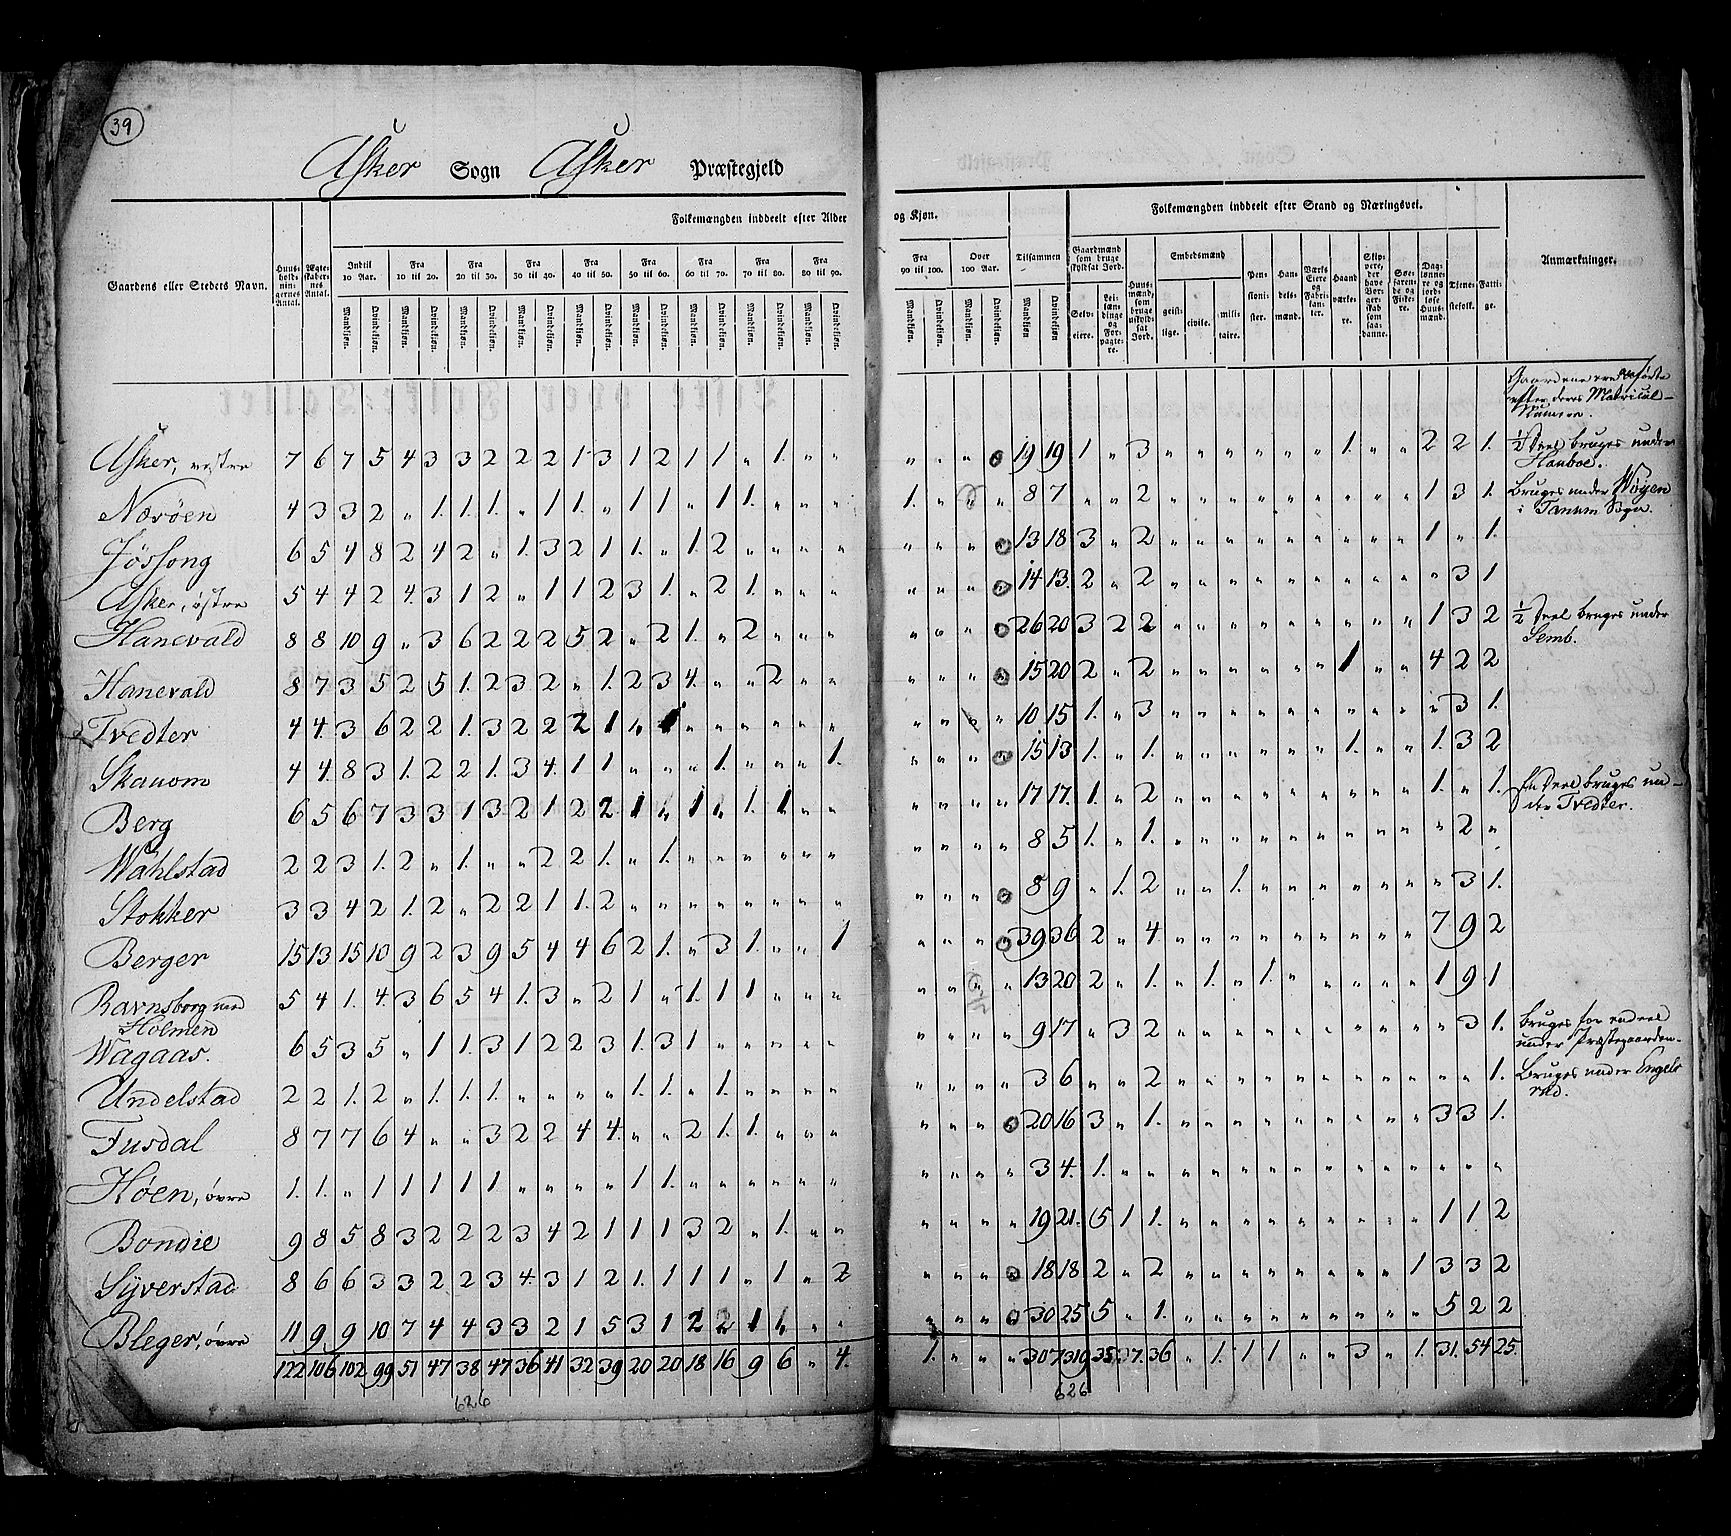 39
Asker Sogn Asker Præstegjeld
Gaardens eller Stedets Navn.
Huus-holdnin-gernes Antal.
Ægte-skaber-nes Antal.
Folkemængden inddeelt efter Alder og Kjøn.
Indtil 10 Aar. Fra 10 til 20. Fra 20 til 30. Fra 30 til 40. Fra 40 til 50. Fra 50 til 60. Fra 60 til 70. Fra 70 til 80. Fra 80 til 90. Fra 90 til 100. Over 100 Aar. Tilsammen
Mandkjøn. Qvindekjøn.
Folkemængden inddeelt efter Stand og Næringsvei.
Gaardmænd som bruge skyldsat Jord.
Selv-eiere. Lei-lændinge og For-pagte-re.
Huus-mænd, som bruge uskyld-sat Jord.
Embedsmænd
geist-lige. civile. mili-taire.
Pen-sioni-ster.
Han-dels-mænd.
Værks Eiere og Fabri-kan-ter.
Haand-værke-re.
Skip-pere, der have Bor-ger-skab som saa-danne.
Søe-farende og Fiske-re.
Dag-lønne-re og jord-løse Huus-mænd.
Tjene-stefolk.
Fatti-ge.
Anmærkninger.
Gaardene ere anførte efter deres Matricul-Numere.
Asker, vestre 7 6 7 5 4 3 3 2 2 2 2 1 3 1 2 1 1 " 1. " " " " " 0 19 19 1 " 3 " " " " " " 1. " " 2 2 1. ½ Deel bruges under Hauboe.
Norøen 4 3 3 2 " 1. 1. 1. " 1 1. " 1 1 " 1 1. " " " 1. " " " 8 7 " " 2 " " " " " " " " " 1 3 1. Bruges under Wøyen i Tanum Sogn.
Jøssong 6 5 4 8 2 4 2 " 1. 3 2 1 1. " 1. 2 " " " " " " " 0 13 18 3 " 2 " " " " " " " " " 1 " 1.
Asker, østre 5 4 4 2 4 3 1 2 " 1 1 2 3 1. " 2 1. " " " " " 0 14 13. 2 " 2 " " " " " " " " " " 3 1
Hanevald 8 8 10 9 " 3 6 2 2 2 5 2 " 2 1. " 2 " " " " " " 0 26 20 3 2 2 " " " " " " " " " 1 3 2 ½ Deel bruges under Semb.
Hanevald 8 7 3 5 2 5 1. 2 3 2 " 1. 2 3 4. " " 2 " " " " " 0 15 20 2 " 2 " " " " " " 1 " " 4 2 2
Tvedter 4 4. 3 6 2 2 1. 3 2 2 2 1 " 1 " " " " " " " " " " 10 15 1. " 3 " " " " " " " " " " 3 1.
Skauom 4 4. 8 3 1. 2 2 1. 3 4. 1 1 " " " 1. " " " 1. " " " 0 15 13 1. " 1. " " " " " " 1. " " 1. 3 2
Berg 6 5 6 7 3 3 1 3 2 1 2 2 1 " 1 " 1. 1 " " " " " " 17 17. 1. " 2 " " " " " " " " " 1. " 1. En Deel bruges under Tvedter.
Wahlstad 2 2 3 1. 2 " 1. " " 2 2 1. " 1. " " " " " " " " " " 8 5 1. " 1. " " " " " " " " " " 2 "
Stokker 3 3 4 2 1. 2 " 2 2 1 1. 2 " " " " " " " " " " " 0 8 9 " 1. 2 " " 1. " " " " " " " 3 1.
Berger 15 13 15 10 9 2 3 9 5 4 4 6 2 1. " 3 1. " " 1 " " " 0 39 36 2 " 4 " " " " " " " " " 7 9 2
Ravnsborg med Holmen 5 4 1. 4. 3 6 5 4 1. 3 " 2 1 " 1. 1 1 " " " " " " 13 20 2 " 1. " 1. " 1. " " " " " 1 9 1
Wagaas. 6 5 3 5 " 1 1. 3 1 2 2 3 1. 3 1 " " " " " " " " " 9 17 " 3 2 " " " " " " " " " " 3 1. Bruges for en deel under Præstegaarden.
Undelstad 2 2 1. 2 " 1. 1. 1. " " " " 1. 1. " 1. " " " " " " " " 3 6 " " 2 " " " " " " " " " " " 1. Bruges under Engelsrud.
Fusdal 8 7 7 6 4 " " 3 2 2 4 4. " " 2 1. 1. " " " " " " 0 20 16 3 " 1. " " " " " " " " " 3 3 1.
Høen, øvre 1. 1. " 1 1 1 1 1 " " " " 1 1. " " " " " " " " " " 3 4. 1. " " " " " " " " " " " " " "
Bondie 9 8 5 8 3 2 2 2 3 4 2 1 1 1 3 2 " 1. " " " " " " 19 21. 5 1 1. " " " " " " " " " 1 1. 2
Syverstad 8 6 6 3 3 2 2 3 4. 3 1 2 1. 1 1 1 " 1 " 2 " " " 0 18 18 2 " 2 " " " " " " " " 1 3 3 2
Bleger, øvre 11 9 9 10 7 4 4 3 3 2 1 5 3 1 2 2 1 1. " " " " " 0 30 25 5 " 1. " " " " " " " " " 5 2 2
122 106 102 99 51 47 38 47 36 41 32 39 20 20 18 16 9 6 " 4. 1. " " " 307 319 35. 7. 36 " 1. 1 1 " " 3 " 1. 31. 54 25.
626 626